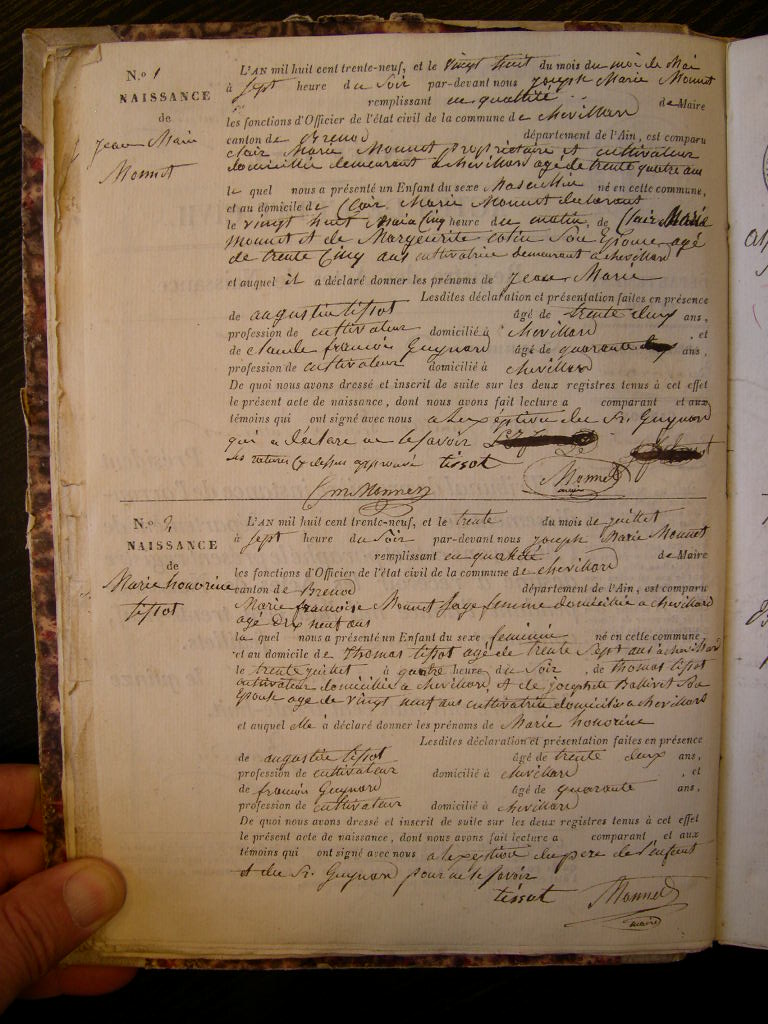 N.o 1
NAISSANCE
de
Jean Marie
Monnet
L'AN mil huit cent trente-neuf, et le vingt huit du mois du moi de Mai
à sept heure du Soir par-devant nous joseph Marie Monnet
remplissant en quallité de Maire
les fonctions d'Officier de l'état civil de la commune de chevillard
canton de Brenod département de l'Ain, est comparu
Clair Marie Monnet propriétaire et cultivateur
domicillié demeurant a chevillard agé de trente quatre ans
le quel nous a présenté un Enfant du sexe Masculin né en cette commune,
et au domicile de Clair Marie Monnet declarant
le vingt huit Mai a Cinq heure du matin, de Clair Marie
Monnet et de Marguerite Son Epouse agé
de trente Cinq ans cultivatrice demeurant a chevillard
et auquel il a déclaré donner les prénoms de Jean Marie
Lesdites déclaration et présentation faites en présence
de augustin tissot âgé de trente deux ans,
profession de cultivateur domicilié à chevillard , et
de claude françois Guynard âgé de quarante ans,
profession de cultivateur domicilié à chevillard
De quoi nous avons dressé et inscrit de suite sur les deux registres tenus à cet effet
le présent acte de naissance, dont nous avons fait lecture a comparant et aux
témoins qui ont signé avec nous a du Sr. Guynard
qui a déclaré ne le savoir
approuvé tissot
Monnet
maire
N.o 2
NAISSANCE
de
Marie honorine
tissot
L'AN mil huit cent trente-neuf, et le trente du mois de juillet
à sept heure du Soir par-devant nous joseph Marie Monnet
remplissant en qualité de Maire
les fonctions d'Officier de l'état civil de la commune de chevillard
canton de Brenod département de l'Ain, est comparu
Marie françoise Monnet sage femme domicillié a chevillard
agé neuf ans
la quel nous a présenté un Enfant du sexe feminin né en cette commune,
et au domicile de Thomas tissot agé de trente sept ans a chevillard
le trente juillet à quatre heure du Soir , de thomas tissot
cultivateur domicillié a chevillard, et de josephte Sa
Epouse age de vingt neuf ans cultivatrice domicilié a chevillard
et auquel elle a déclaré donner les prénoms de Marie honorine
Lesdites déclaration et présentation faites en présence
de augustin tissot âgé de trente deux ans,
profession de cultivateur domicilié à chevillard , et
de françois Guynard âgé de quarante ans,
profession de cultivateur domicilié à chevillard
De quoi nous avons dressé et inscrit de suite sur les deux registres tenus à cet effet
le présent acte de naissance, dont nous avons fait lecture a comparant et aux
témoins qui ont signé avec nous a du pere de l'enfant
et du Sr. Guynard pour ne le savoir
tissot Monnet
maire